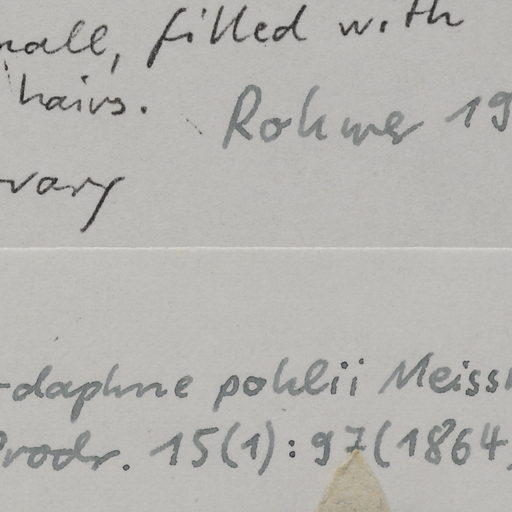 mall, filled with
hairs.
Rohwer 19
ovary
-daphne pohlii Meissn
Prodr. 15(1): 97 (1864)